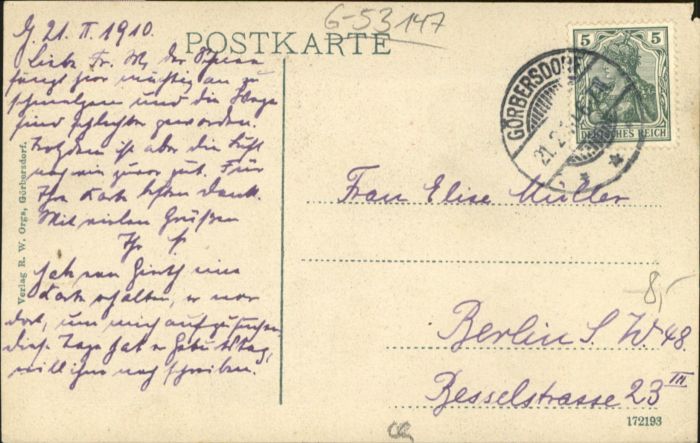 G. 21. II. 1910.
Liebe Fr. M, der Schnee
fängt hier mächtig an zu
schmelzen und die Wege
sind schlechter geworden.
Trotzdem ist aber die Luft
nach wie zuvor gut. Für
Ihre Karte besten Dank.
Mit vielen Grüßen
Ihr
Hab von eine
Karte erhalten, er war
dort, um mich aufzusuchen.
Diese Tage hat er Geburtstag,
will ihm noch schreiben.
Verlag R. W. Orgs, Görbersdorf.
POSTKARTE
G-53147
5 5
DEUTSCHES REICH
GÖRBERSDORF
21.2.10
Frau Elise Müller
-8,-
Berlin S. W 48
Besselstrasse 23 III
172193